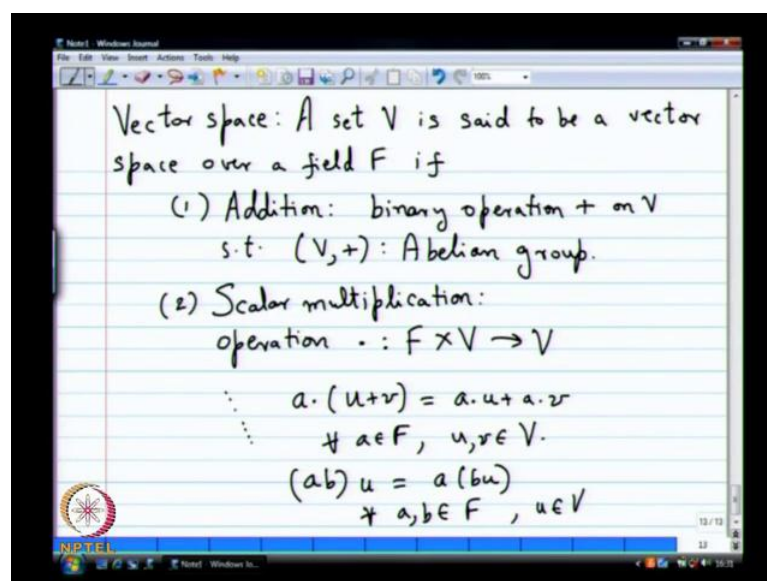 Note1 - Windows Journal
File Edit View Insert Actions Tools Help
100%
Vector space: A set V is said to be a vector
space over a field F if
(1) Addition: binary operation + on V
s.t. (V,+) : Abelian group.
(2) Scalar multiplication:
operation · : F × V → V
a·(u+v) = a·u + a·v
∀ a∈F, u,v∈V.
(ab)u = a(bu)
∀ a,b∈F, u∈V
13 / 13
13
NPTEL
Note1 - Windows Jo...
16:31